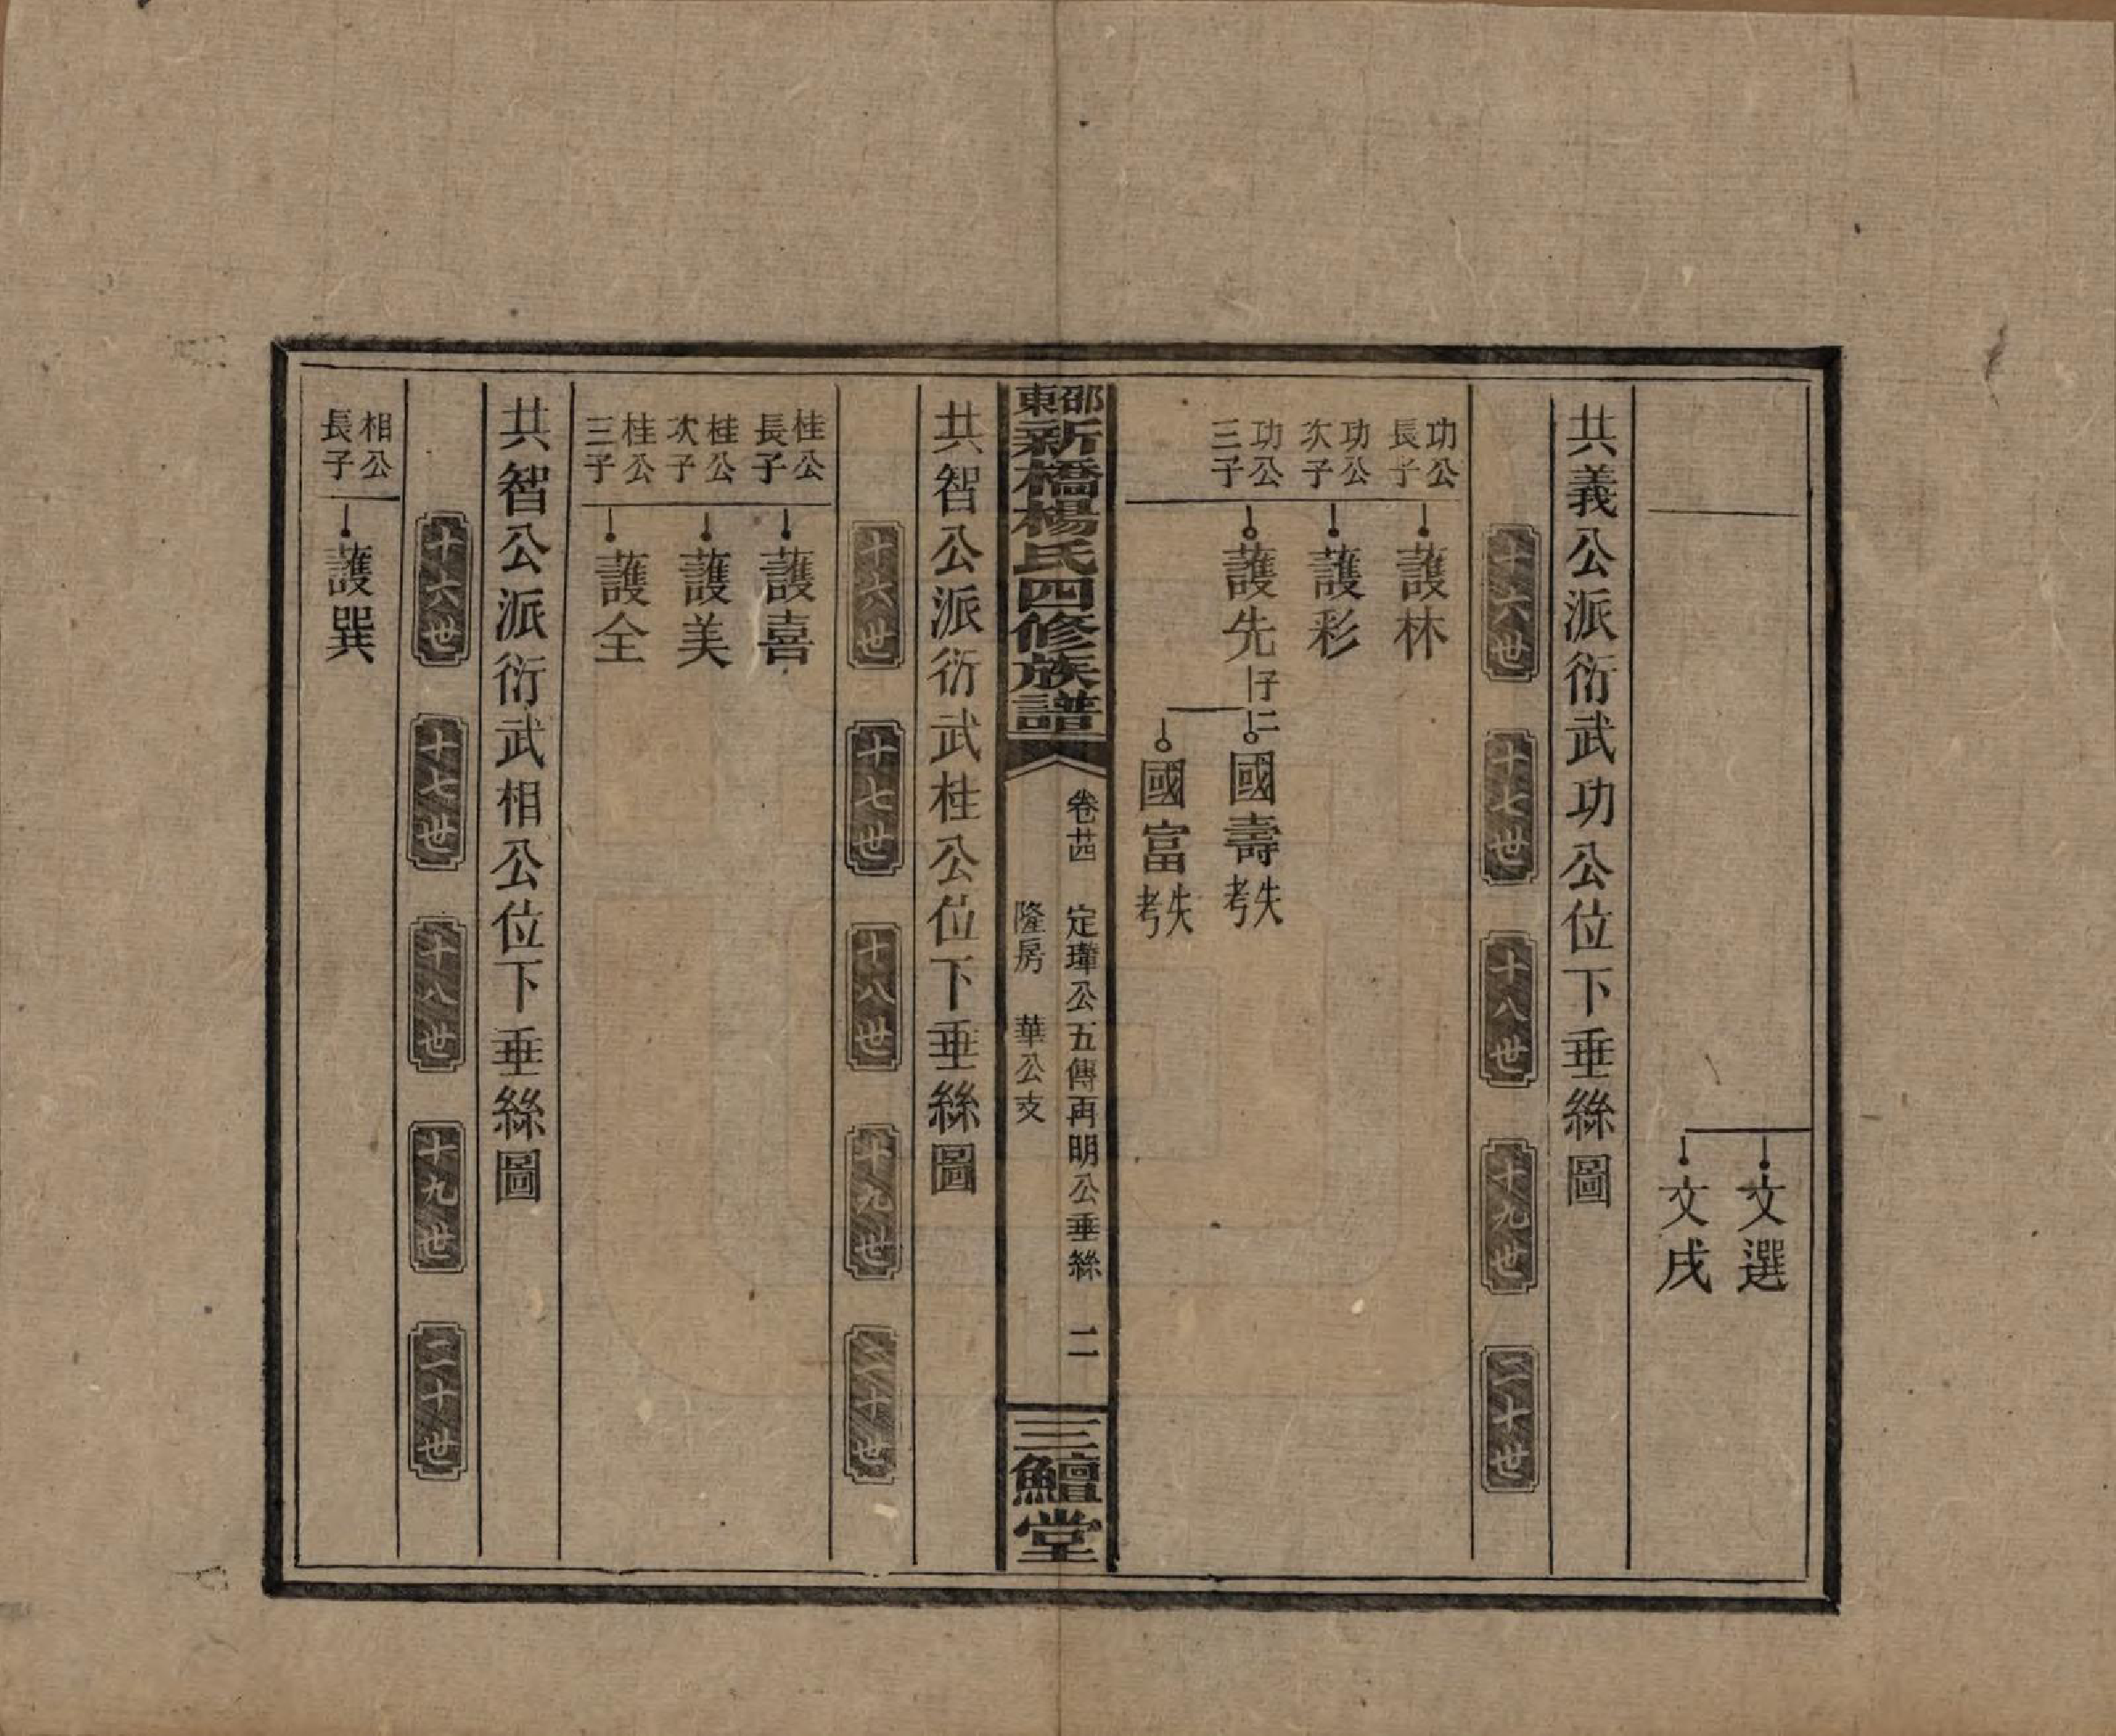 文選
文戌
共義公派衍武功公位下垂絲圖
十六世 十七世 十八世 十九世 二十世
功公長子 護林
功公次子 護彩
功公三子 護先 仔二 國壽 失考
國富 失考
邵東新橋楊氏四修族譜 卷廿四 定瑋公五傳再明公垂絲 二
隆房 華公支
三鱣堂
共智公派衍武桂公位下垂絲圖
十六世 十七世 十八世 十九世 二十世
桂公長子 護喜
桂公次子 護美
桂公三子 護全
共智公派衍武相公位下垂絲圖
十六世 十七世 十八世 十九世 二十世
相公長子 護巽